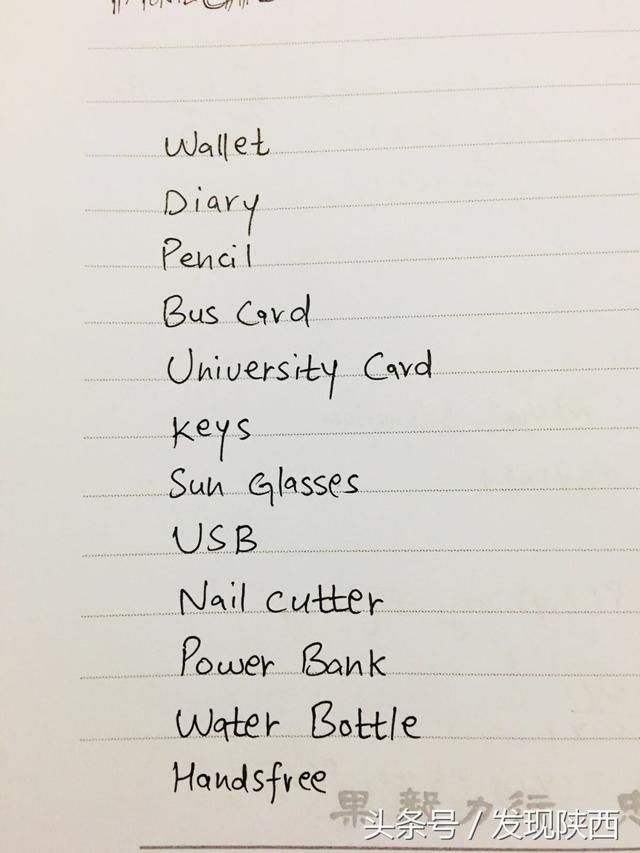 Wallet
Diary
Pencil
Bus Card
University Card
Keys
Sun Glasses
USB
Nail cutter
Power Bank
Water Bottle
Handsfree
果毅力行 忠
头条号 / 发现陕西